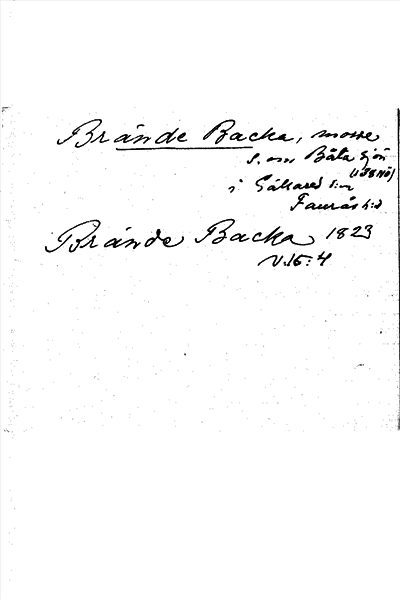 Brände Backa, mosse
S. om Båta sjön
i Gällared s:n
Faurås h:d
Brände Backa 1823
V.15:4